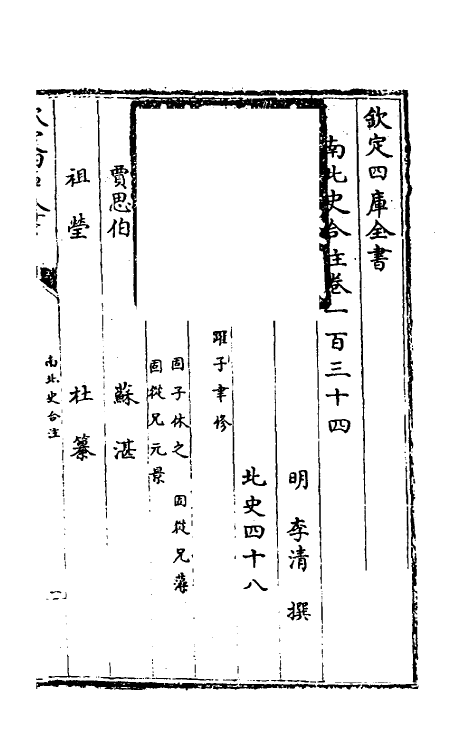 欽定四庫全書
南北史合注卷一百三十四
明 李清 撰
北史四十八
躍子聿修
固子休之 固從兄藻
固從兄元景
賈思伯 蘇湛
祖瑩 杜纂
南北史合注